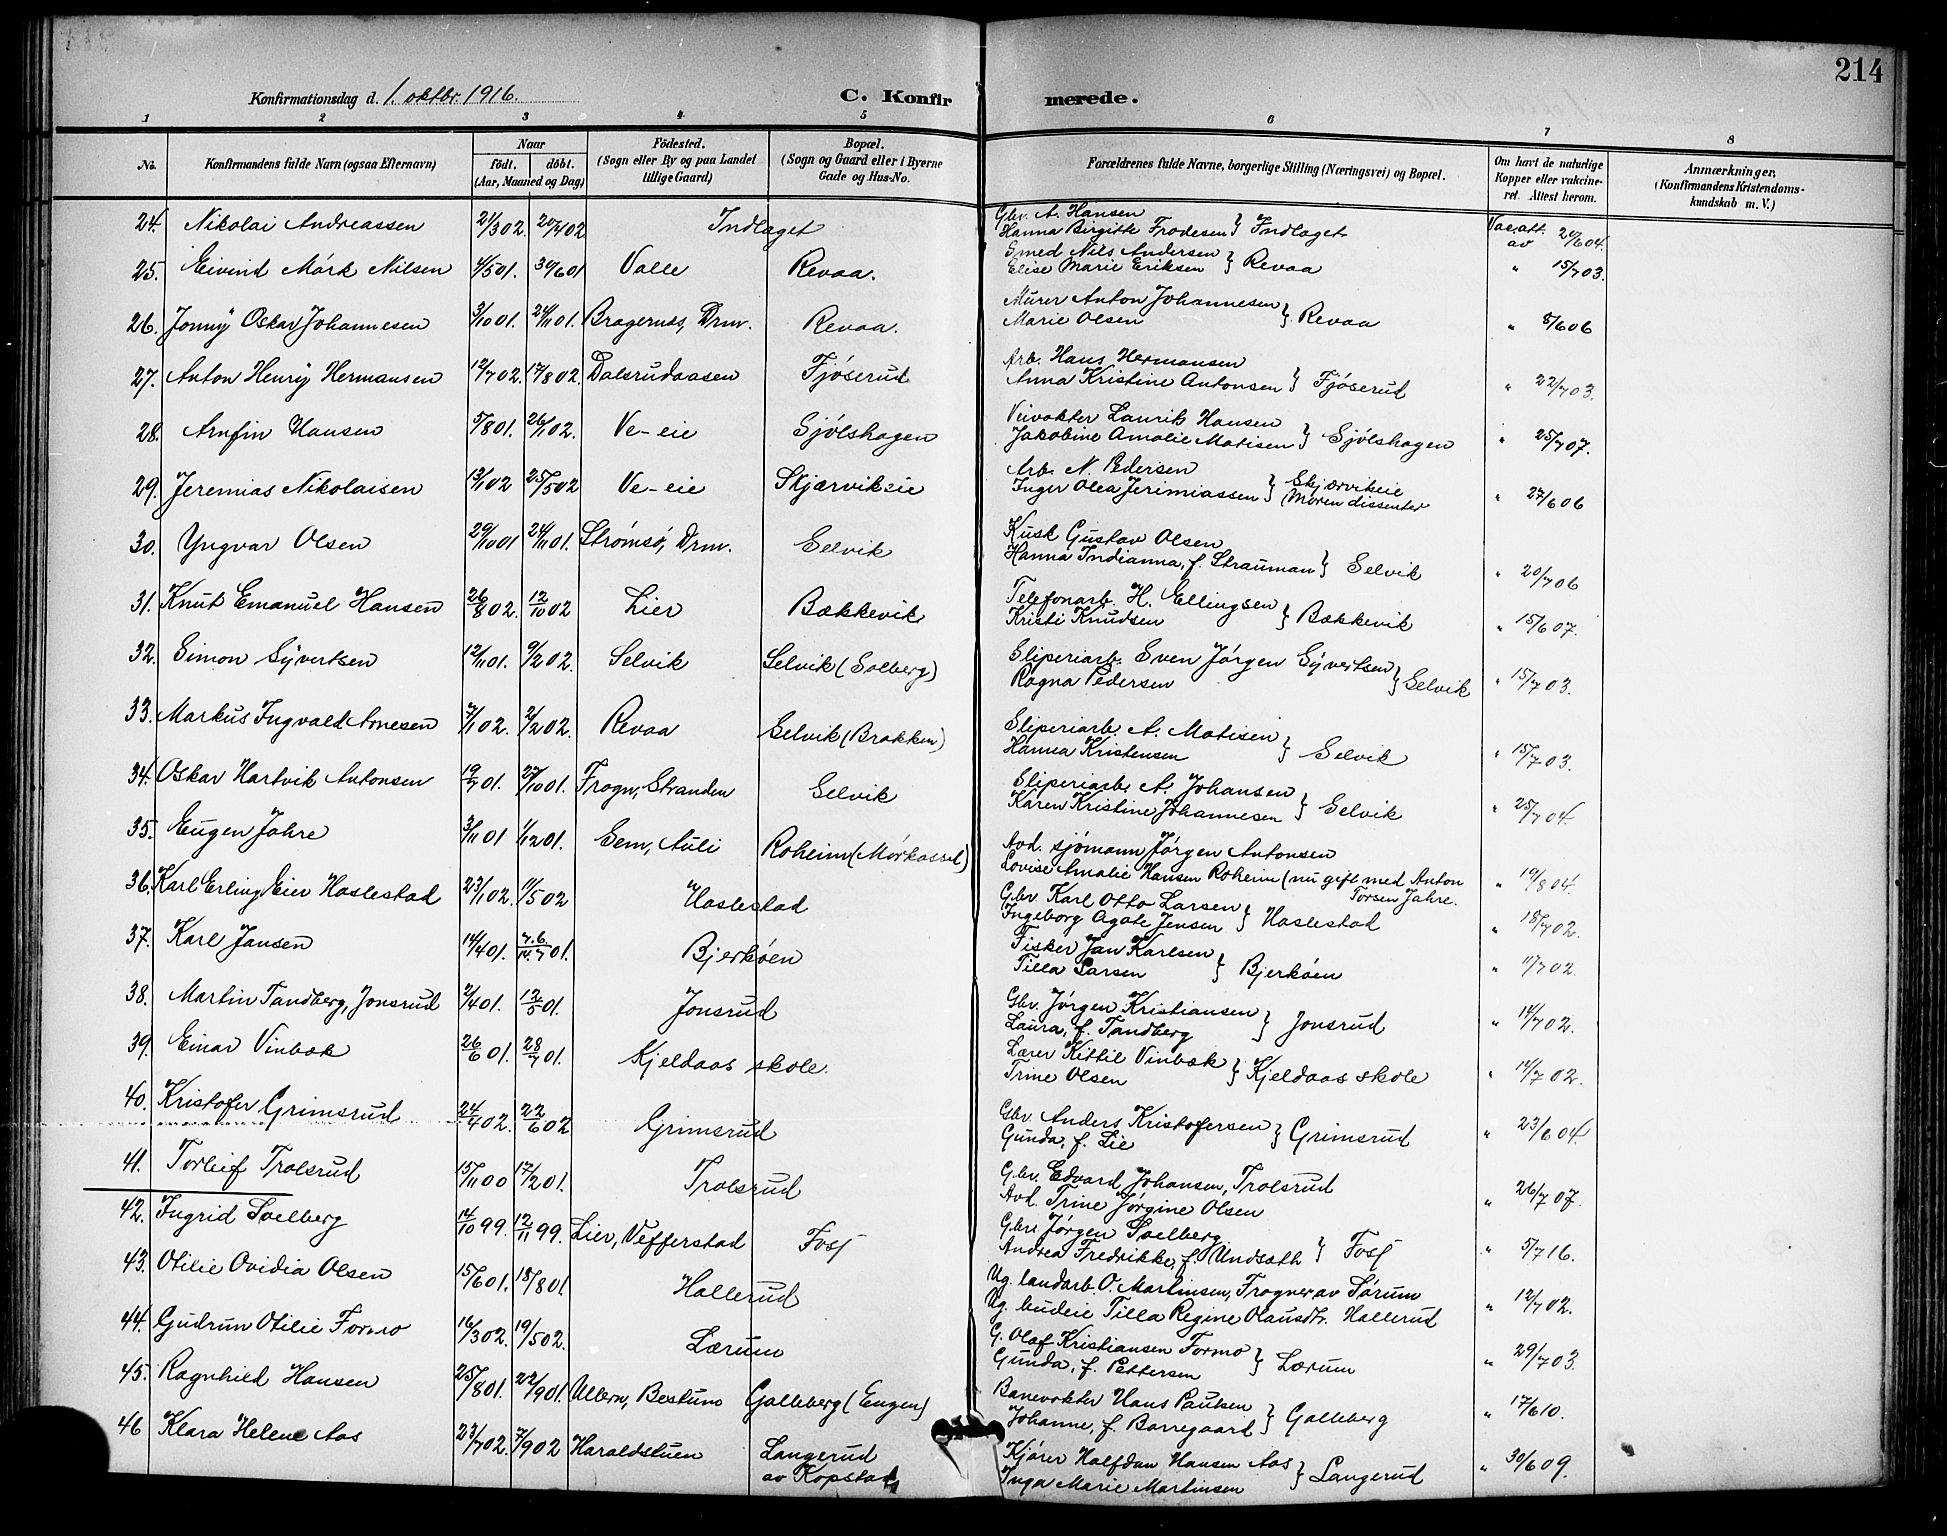 214
Konfirmationsdag d. 1. oktbr. 1916.
C. Konfirmerede.
1 2 3 4 5 6 7 8
No.
Konfirmandens fulde Navn (ogsaa Efternavn)
Naar
født. døbt.
(Aar, Maaned og Dag)
Fødested.
(Sogn eller By og paa Landet
tillige Gaard)
Bopæl.
(Sogn og Gaard eller i Byerne
Gade og Hus-No.
Forældrenes fulde Navne, borgerlige Stilling (Næringsvei) og Bopæl.
Om havt de naturlige
Kopper eller vakcine-
ret. Attest herom.
Anmærkninger,
(Konfirmandens Kristendoms-
kundskab m. V.)
24. Nikolai Andreassen 21/3 02. 20/4 02 Indlaget Gbr. A. Hansen
Hanna Birgitte Frodesen } Indlaget Vac. att. av 20/6 04.
25. Eivind Mørk Nilsen 4/5 01. 30/6 01 Valle Revaa. Smed Nils Andersen
Elise Marie Eriksen } Revaa " 15/7 03.
26. Jonny Oskar Johannesen 3/10 01. 24/11 01. Bragernes, Drm. Revaa. Murer Anton Johannesen
Marie Olsen } Revaa " 8/6 06
27. Anton Henry Hermansen 12/7 02. 17/8 02. Dalsrudaasen Fjøserud Arb. Hans Hermansen
Anna Kristine Antonsen } Fjøserud " 22/7 03.
28. Arnfin Hansen 5/8 01. 26/1 02. Ve-eie Sjølshagen Veivokter Laurits Hansen
Jakobine Amalie Matisen } Sjølshagen " 25/7 07.
29. Jeremias Nikolaisen 13/1 02 25/5 02 Ve-eie Skjærvikeie Arb. N. Pedersen
Inger Olea Jerimiassen } Skjærvikeie
(Moren dissenter " 27/6 06
30. Yngvar Olsen 29/10 01 24/11 01. Strømsø, Drm. Selvik Kusk Gustav Olsen
Hanna Indianna, f. Strauman } Selvik " 20/7 06
31. Knut Emanuel Hansen 26/8 02. 12/10 02 Lier Bækkevik Telefonarb. H. Ellingsen
Kristi Knudsen } Bækkevik " 15/6 07.
32. Simon Syvertsen 12/11 01. 9/2 02. Selvik Selvik (Solberg) Sliperiarb. Sven Jørgen Syvertsen
Ragna Pedersen } Selvik " 15/7 03.
33. Markus Ingvald Arnesen 7/1 02. 2/2 02. Revaa Selvik (Brakken) Sliperiarb. A. Matisen
Hanna Kristensen } Selvik " 15/7 03.
34. Oskar Hartvik Antonsen 19/7 01. 27/10 01. Frogn, Stranden Selvik Sliperiarb. A. Johansen
Karen Kristine Johannesen } Selvik " 25/7 04.
35. Eugen Jahre 3/11 01 1/12 01. Sem, Auli Roheim (Mørkassel) Avd. sjømann Jørgen Antonsen
Lovise Amalie Hansen Roheim (nu gift med Anton
Torsen Jahre. " 19/8 04.
36. Karl Erling Eier Haslestad 23/1 02. 11/5 02 Haslestad Gbr. Karl Otto Larsen
Ingeborg Agate Jensen } Haslestad " 18/7 02.
37. Karl Jansen 14/4 01. 7.6/14.7 01. Bjerkøen Fisker Jan Karlsen
Tilla Larsen } Bjerkøen " 11/7 02.
38. Martin Tandberg, Jonsrud 2/4 01. 12/5 01. Jonsrud Gbr. Jørgen Kristiansen
Laura, f. Tandberg } Jonsrud " 14/7 02.
39. Einar Vinbæk 26/6 01. 28/7 01. Kjeldaas skole. Lærer Kittil Vinbæk
Trine Olsen } Kjeldaas skole " 14/7 02.
40. Kristofer Grimsrud 24/4 02. 22/6 02 Grimsrud Gbr. Anders Kristofersen
Gunda, f. Lie } Grimsrud " 23/6 04
41. Torleif Trolsrud 15/11 00 17/2 01. Trolsrud Gbr. Edvard Johansen, Trolsrud
Avd. Trine Jørgine Olsen " 26/7 07.
42. Ingrid Svelberg 14/10 99. 12/11 99. Lier, Vefferstad Foss Gbr. Jørgen Svelberg
Andrea Fredrikke, f. Undsath } Foss " 5/7 16.
43. Otilie Ovidia Olsen 15/6 01. 18/8 01 Hallerud Ug. landarb. O. Martinsen, Frogner av Sørum
Ug. budeie Tilla Regine Olausdtr. Hallerud " 12/7 02.
44. Gudrun Otilie Formo 16/3 02. 19/5 02. Lærum G. Olaf Kristiansen Formo
Gunda, f. Pettersen } Lærum " 29/7 03.
45. Ragnhild Hansen 25/8 01. 22/9 01. Ullern, Bestum Galleberg (Engen) Banevokter Hans Paulsen
Johanne, f. Borregaard } Galleberg " 17/6 10.
46 Klara Helene Aas 23/7 02. 7/9 02 Haraldstuen Langerud
av Kopstad Kjører Halfdan Hansen Aas
Inga Marie Martinsen } Langerud " 30/6 09.